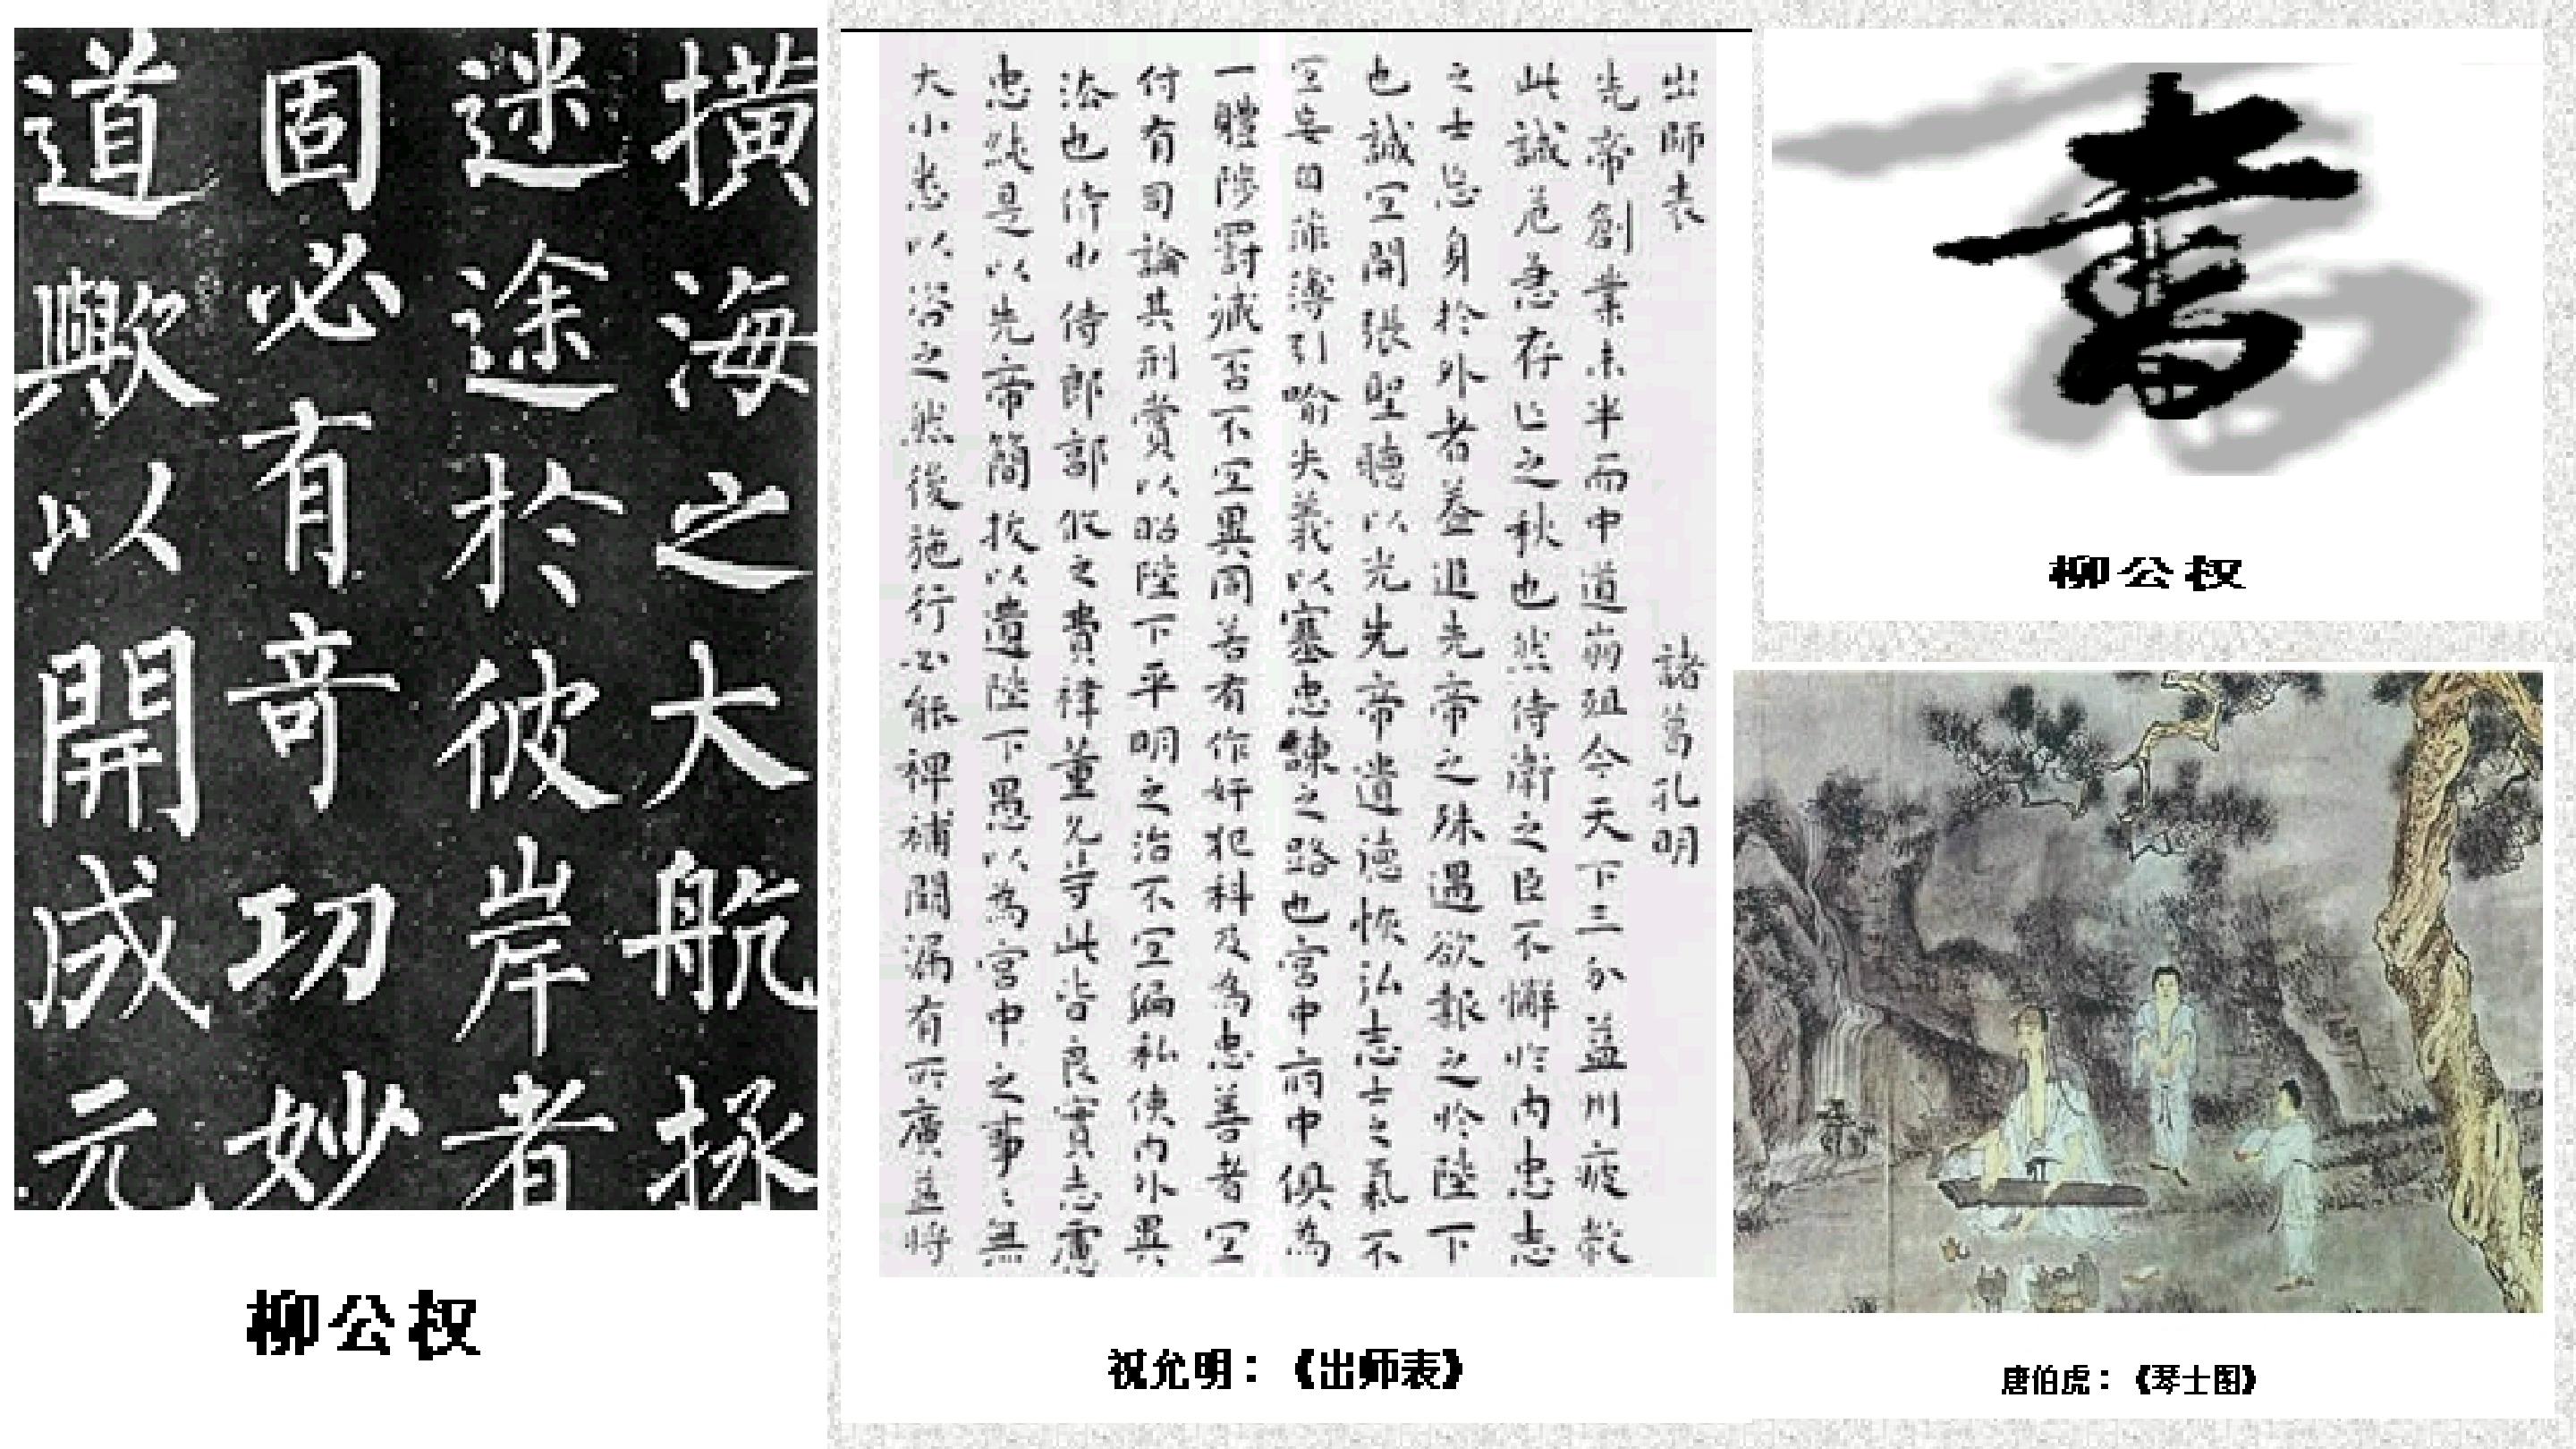 橫海之大航拯
迷途於彼岸者
固必有奇功妙
道歟以開成元
柳公权
出師表 諸葛孔明
先帝創業未半而中道崩殂今天下三分益州疲敝
此誠危急存亡之秋也然侍衛之臣不懈於内忠志
之士忘身於外者蓋追先帝之殊遇欲報之於陛下
也誠宜開張聖聽以光先帝遺德恢弘志士之氣不
宜妄自菲薄引喻失義以塞忠諫之路也宮中府中俱為
一體陟罰臧否不宜異同若有作奸犯科及為忠善者宜
付有司論其刑賞以昭陛下平明之治不宜偏私使内外異
法也侍中侍郎郭攸之費禕董允等此皆良實志慮
忠純是以先帝簡拔以遺陛下愚以為宮中之事〻無
大小悉以咨之然後施行必能裨補闕漏有所廣益將
祝允明：《出师表》
書
柳公权
唐伯虎：《琴士图》